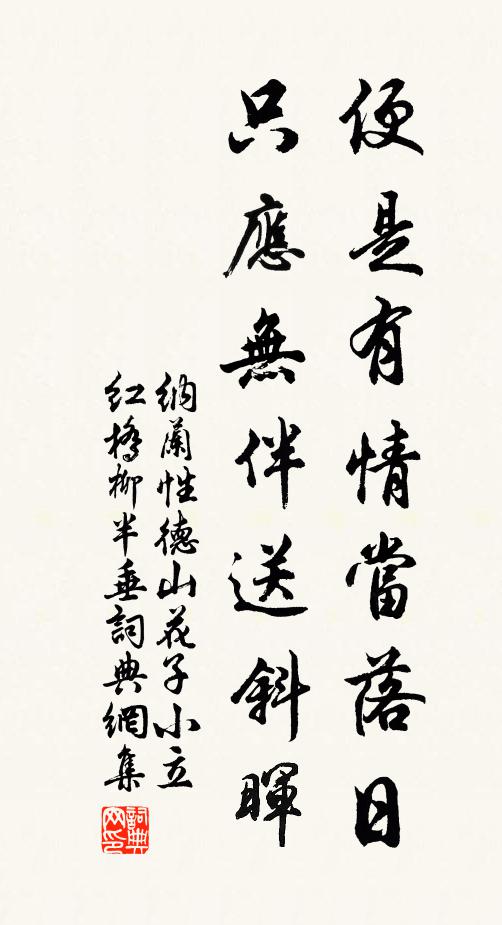 便是有情當落日
只應無伴送斜暉
納蘭性德山花子小立
紅橋柳半垂詞典網集
詞典網印